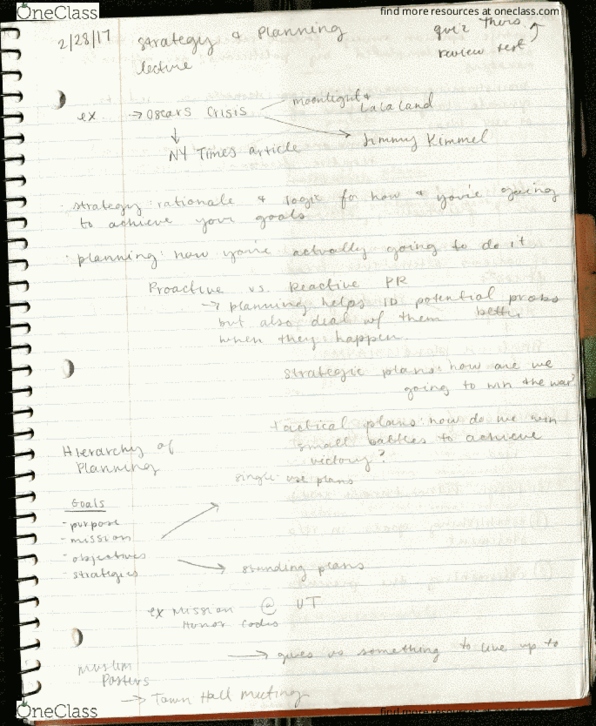 OneClass
find more resources at oneclass.com
2/28/17
strategy & Planning
lecture
quiz Thurs
review text
ex → Oscars Crisis
moonlight &
La La Land
Jimmy Kimmel
NY Times article
· strategy: rationale & logic for how & you're going
to achieve your goals
· planning: how you're actually going to do it
Proactive vs. Reactive PR
→ planning helps ID potential probs
but also deal w/ them better
when they happen.
strategic plans: how are we
going to win the war?
tactical plans: how do we win
small battles to achieve
victory?
Hierarchy of
Planning
single use plans
Goals
- purpose
- mission
- objectives
- strategies
standing plans
ex Mission @ UT
Honor Codes
→ gives us something to live up to
Muslim
Posters
→ Town Hall Meeting
OneClass
find more resources at oneclass.com